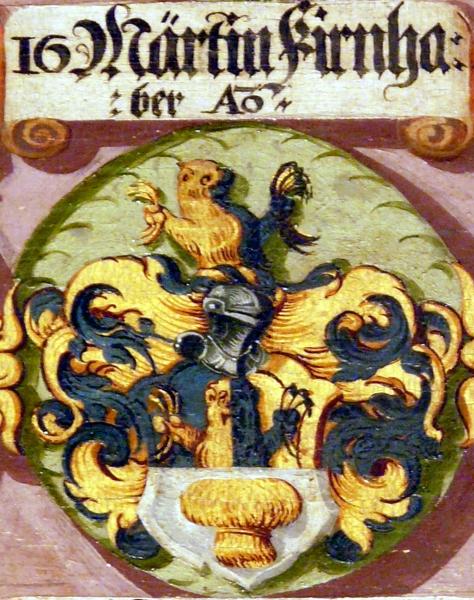 16 Märtin Firnha:
: ber Aō :